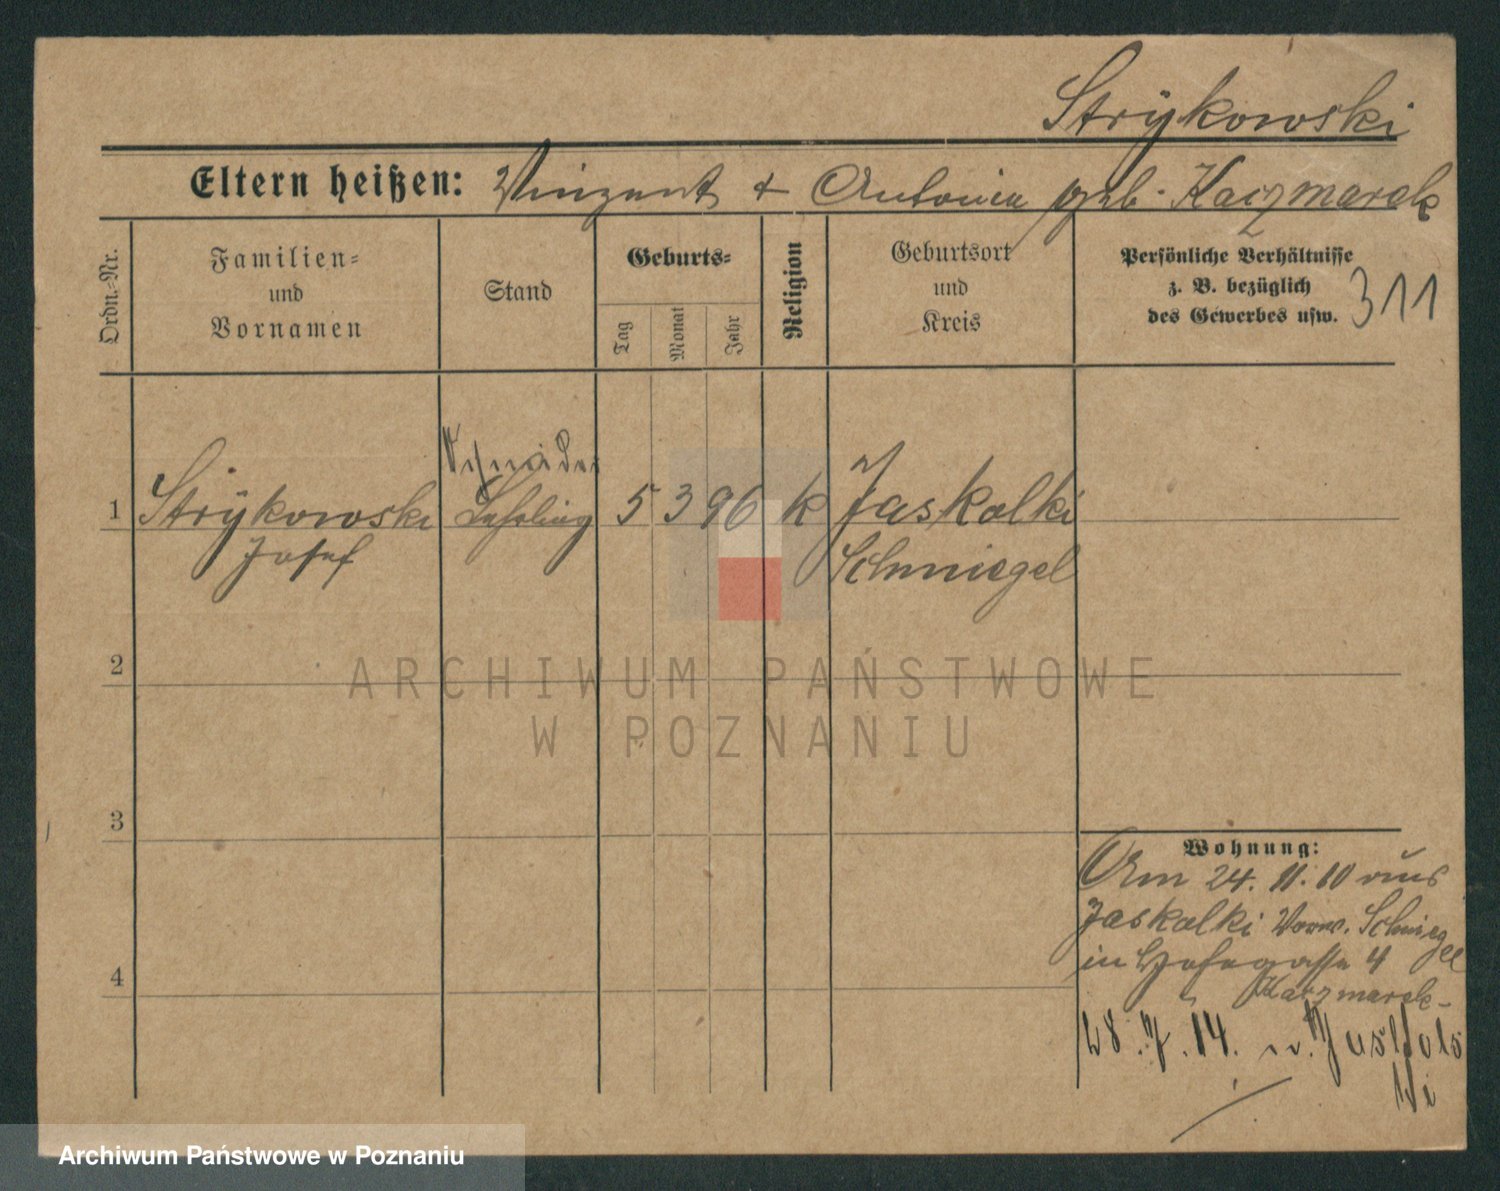 Strÿkowski
Eltern heißen: Vinzent + Antonia geb. Kaczmarek
Ordn.-Nr.
Familien=
und
Vornamen
Stand
Geburts=
Tag
Monat
Jahr
Religion
Geburtsort
und
Kreis
Persönliche Verhältnisse
z. B. bezüglich
des Gewerbes usw.
311
Schneider
1 Strÿkowski Lehrling 5 3 96 k Jaskolki
Josef Schmiegel
2
ARCHIWUM PAŃSTWOWE
W POZNANIU
3
Wohnung:
Am 24. 11. 10 aus
Jaskolki Schmiegel
in 4
4
Kaczmarek-
28. 7. 14. n.
Archiwum Państwowe w Poznaniu